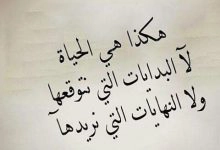 هكذا هي الحياة
لآ البدايات التي نتوقعها
ولا النهايات التي نريدهآ